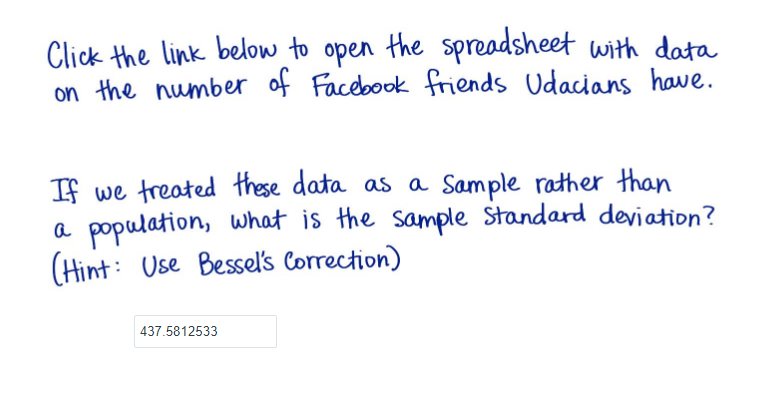 Click the link below to open the spreadsheet with data
on the number of Facebook friends Udacians have.
If we treated these data as a Sample rather than
a population, what is the sample Standard deviation?
(Hint: Use Bessel's Correction)
437.5812533